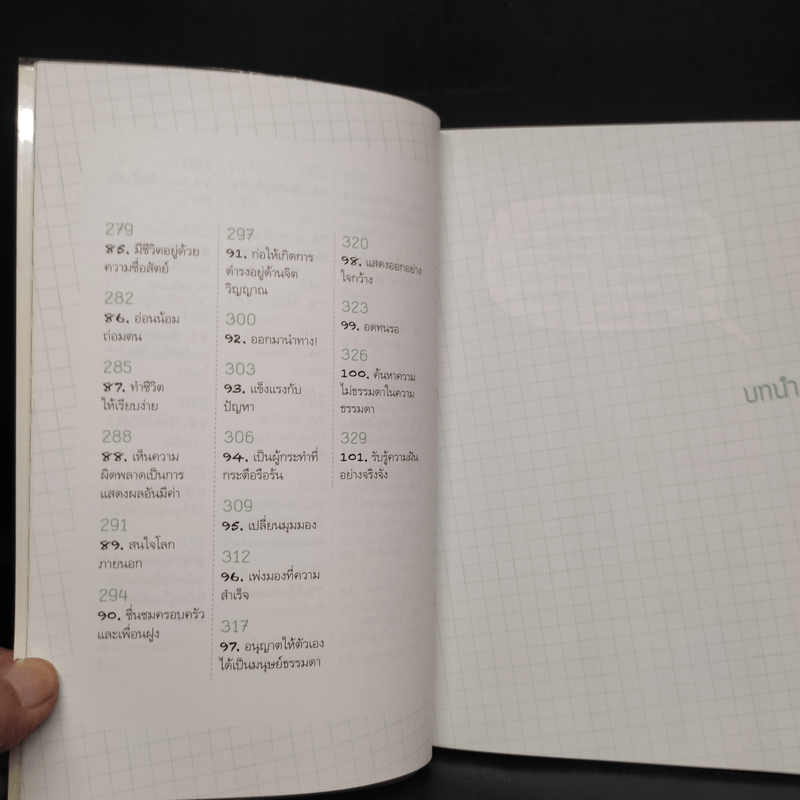 279
85. มีชีวิตอยู่ด้วย
ความซื่อสัตย์
282
86. อ่อนน้อม
ถ่อมตน
285
87. ทำชีวิต
ให้เรียบง่าย
288
88. เห็นความ
ผิดพลาดเป็นการ
แสดงผลอันมีค่า
291
89. สนใจโลก
ภายนอก
294
90. ชื่นชมครอบครัว
และเพื่อนฝูง
297
91. ก่อให้เกิดการ
ดำรงอยู่ด้านจิต
วิญญาณ
300
92. ออกมานำทาง!
303
93. แข็งแรงกับ
ปัญหา
306
94. เป็นผู้กระทำที่
กระตือรือร้น
309
95. เปลี่ยนมุมมอง
312
96. เพ่งมองที่ความ
สำเร็จ
317
97. อนุญาตให้ตัวเอง
ได้เป็นมนุษย์ธรรมดา
320
98. แสดงออกอย่าง
ใจกว้าง
323
99. อดทนรอ
326
100. ค้นหาความ
ไม่ธรรมดาในความ
ธรรมดา
329
101. รับรู้ความฝัน
อย่างจริงจัง
บทนำ